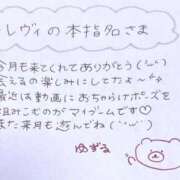 レヴィの本指名さま
今月も来てくれてありがとう(·ᴗ·)
会えるの楽しみにしてたよ〜
最近は動画におちゃらけポーズを
組みこむのがマイブームです♡
また来月も遊んでね(˙ᴗ˙)
ゆずる